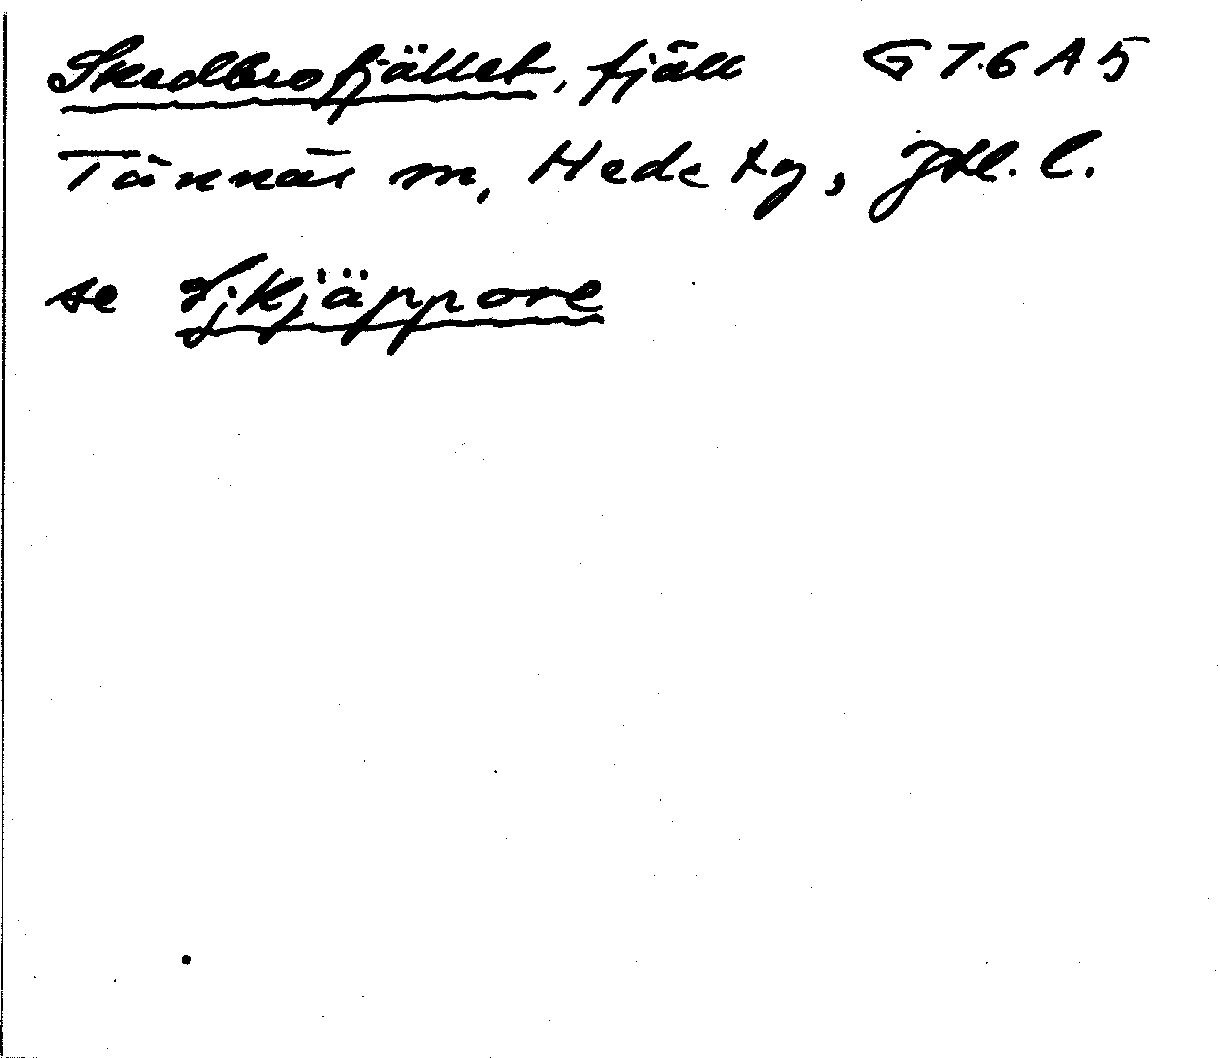 Skedbrofjället, fjäll G 7.6 A 5
Tännäs sn, Hede tg, Jtl. l.
se